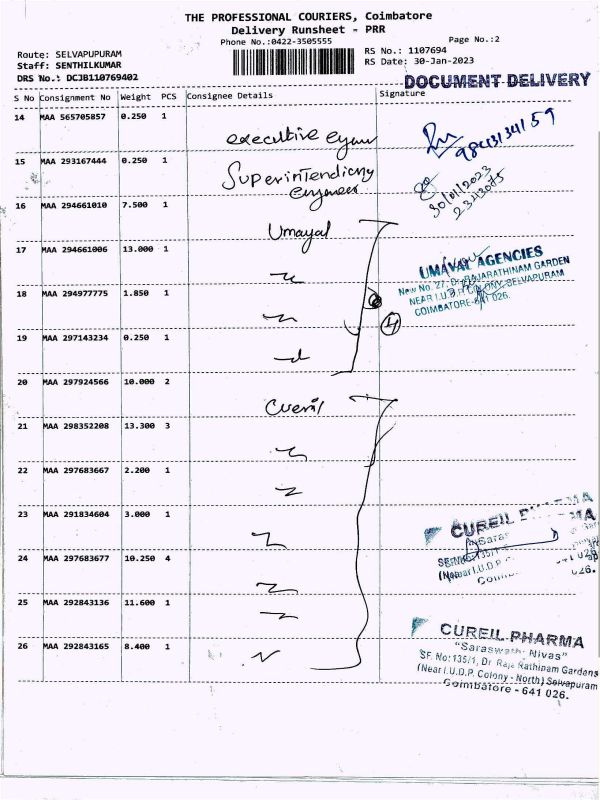 THE PROFESSIONAL COURIERS, Coimbatore
Delivery Runsheet - PRR
Phone No.:0422-3505555
Page No.:2
Route: SELVAPUPURAM
RS No.: 1107694
Staff: SENTHILKUMAR
RS Date: 30-Jan-2023
DRS No.: DCJB110769402
DOCUMENT DELIVERY
S No Consignment No Weight PCS Consignee Details Signature
14 MAA 565705857 0.250 1
executive
9843134159
15 MAA 293167444 0.250 1
Superintendicny
engineer
30/01/2023
2343075
16 MAA 294661010 7.500 1
Umayal
17 MAA 294661006 13.000 1
UMAYAL AGENCIES
New No. 27, Dr. RAJARATHINAM GARDEN
NEAR I.U.D.P. COLONY, SELVAPURAM
COIMBATORE-641 026.
18 MAA 294977775 1.850 1
4
19 MAA 297143234 0.250 1
20 MAA 297924566 10.000 2
Cureil
21 MAA 298352208 13.300 3
22 MAA 297683667 2.200 1
23 MAA 291834604 3.000 1
CUREIL
24 MAA 297683677 10.250 4
25 MAA 292843136 11.600 1
26 MAA 292843165 8.400 1
CUREIL PHARMA
"Saraswathi Nivas"
SF. No: 135/1, Dr. Raja Rathinam Gardens
(Near I.U.D.P. Colony - North) Selvapuram
Coimbatore - 641 026.